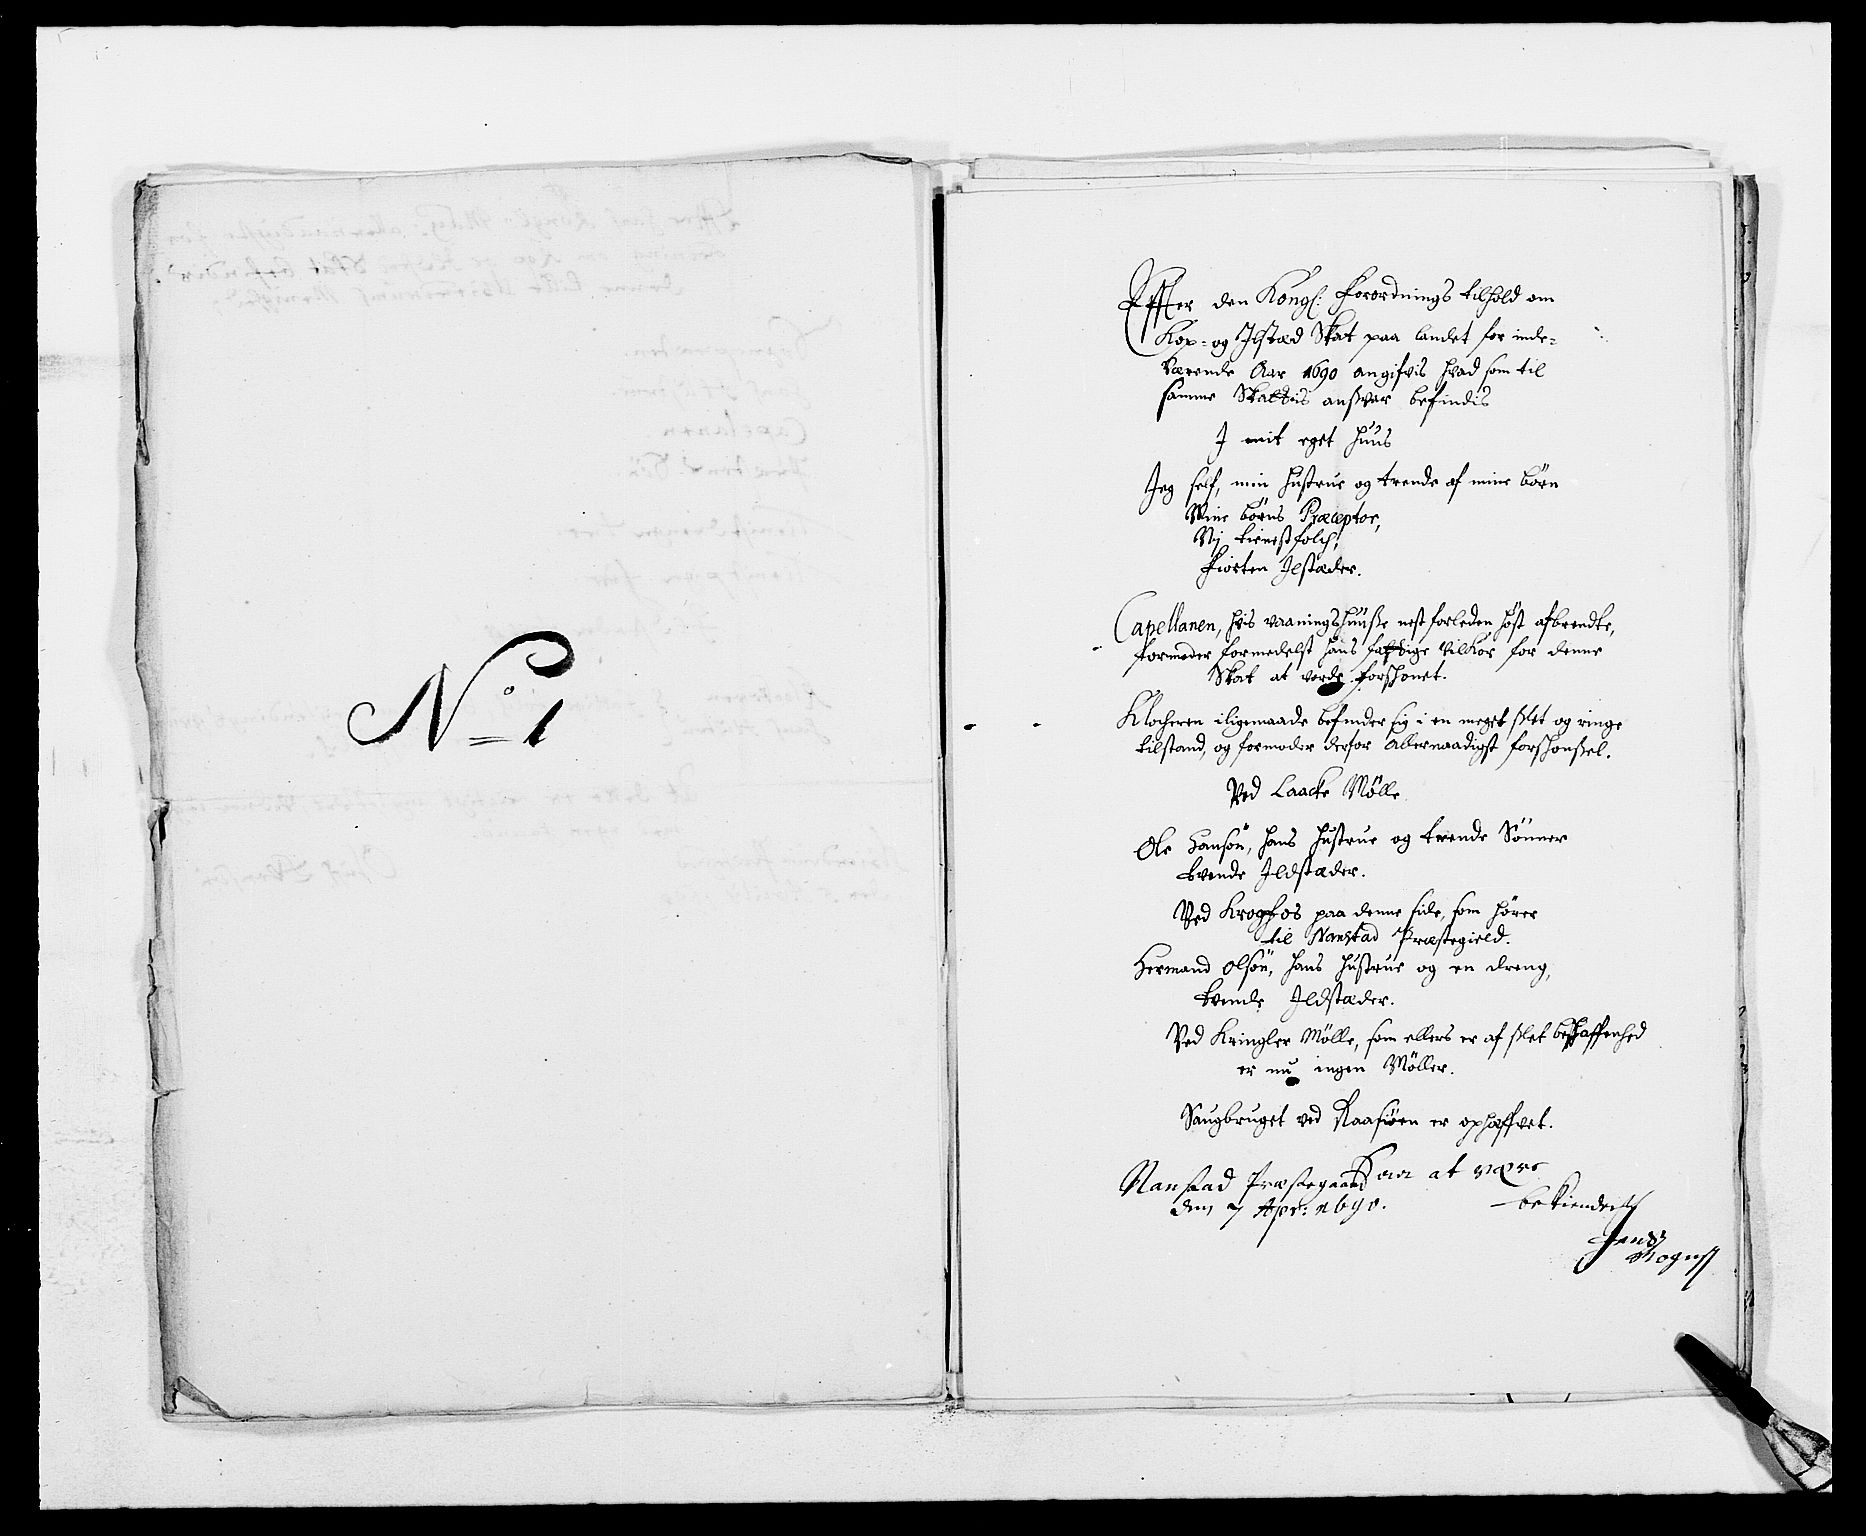 No 1
Effter den Kongl: Forordnings tilhold om
Kop- og Ilstæd Skat paa landet for inde-
værende Aar 1690 angifvis hvad som til
samme Skattis ansvar befindis
I mit eget huus
Jeg self, min hustrue og trende af mine börn
Mine börns Præceptor,
Nij tienestfolch,
Fiorten Ilstæder.
Capellanen, hvis vaaningshuusse nest forleden höst afbrendte,
formoder formedelst hans fattige vilkor for denne
Skat at vorde forskonet.
Klocheren iligemaade befinder sig i en meget slet og ringe
tilstand, og formoder derfor Allernaadigst forskonssel.
Ved Laacke Mölle
Ole Hansön, hans hustrue og trende Sönner
tvende Ildstæder.
Ved Krogfos paa denne side, som hörer
til Nanstad Præstegield.
Hermand Olsön, hans hustrue og en dreng,
tvende Ildstæder.
Ved Kringler Mölle, som ellers er af slet beskaffenhed
er nu ingen Möller.
Saugbruget ved Raasiöen er ophæffvet.
Saa at være
Nanstad Præstegaard
den 7 Apr: 1690.
bekiender
Jens